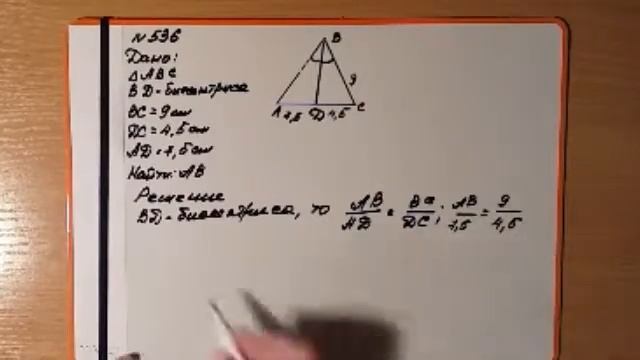 N 536
Дано:
△ABC
BD - биссектриса
BC = 9 см
DC = 4,5 см
AD = 7,5 см
Найти: AB
B
9
A 7,5 D 4,5 C
Решение
BD - биссектриса, то AB/AD = BC/DC; AB/7,5 = 9/4,5